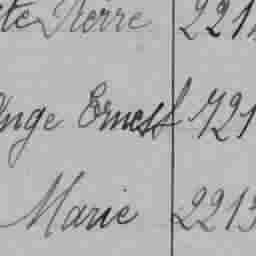 te Pierre 221
Ange Ernest 721
Marie 2213